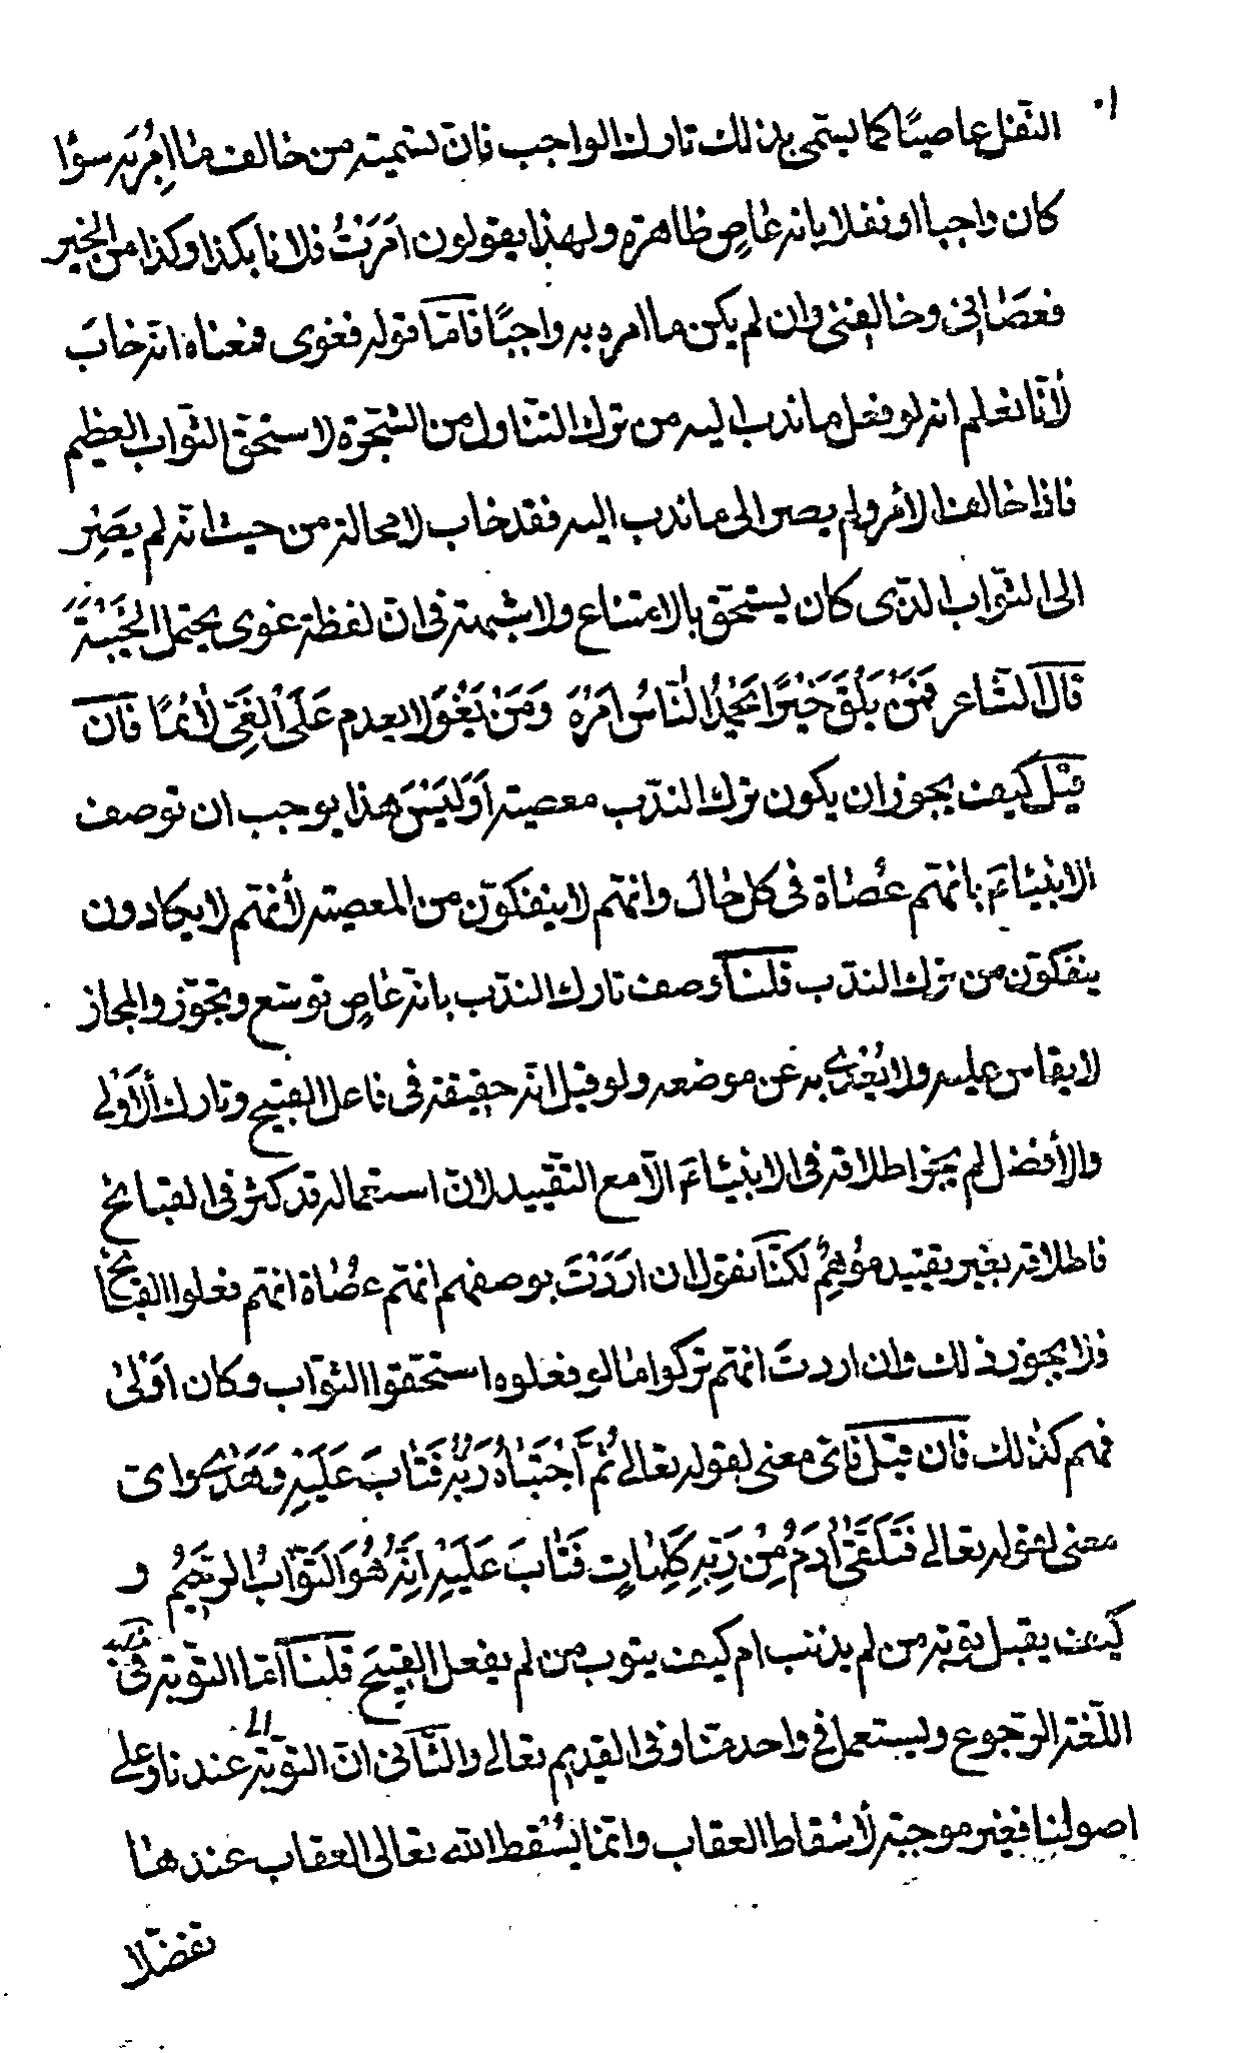 ١٠
النّفل عاصيًا كما يسمّى بذلك تارك الواجب فانّ تسميته من خالف ما اُمِرُ به سوٰا
كان واجبا او نفلا بانه عٰاصٍ ظاهرة ولهذا يقولون امَرَتْ فلانا بكذا وكذا من الخير
فعصٰانى وخالفنى وان لم يكن ما امره به واجبًا فامّا قوله فغوى فمعناه انّه خٰابَ
لأنّا نعلم انه لو فعل ما ندب اليه من ترك التناول من الشّجرة لاستحقّ الثّواب العظيم
فاذا خالف الأمر ولم يصر الى ما ندب اليه فقد خاب لا محالة من حيث انّه لم يصِر
الى الثّواب الّذى كان يستحقّ بالامتناع ولا شبهة فى انّ لفظة غوى يحتمل الخَيْبَةَ
قال الشّاعر فمَنْ يَلْقَ خَيْرًا يحْمِدُ النّاسُ امَرْهُ وَمَنْ يَغْوَ لا يعدم عَلَى الْغَىّ لٰائمًا فان
قيْل كيف يجوز ان يكون ترك النّدب معصية أوَلَيْسَ هذا يوجب ان توصف
الانبيٰاءَ بانهّم عُصٰاة فى كل حٰال وانهّم لا ينفكوّن من المعصية لأنهّم لا يكادون
ينفكوّن من ترك النّدب قلنا وصف تارك النّدب بانّه عٰاصٍ توسّع وتجوّز والمجاز
لا يقاس عليه ولا يُعْدّى به عن موضعه ولو قيل انّه حقيقة فى فاعل القبيح وتارك الأَوْلى
والأفضل لم يجز اطلاقه فى الانبيٰاءَ الّا مع التّقييد لانّ استعماله قد كثر فى القبائح
فاطلاقه بغير تقييد موُهمٌ لكنّا نقول ان ارَدَتْ بوصفهم انهّم عصُاة انهّم فعلوا القبائح
فلا يجوز ذلك وان اردت انهّم تركوا مٰا لو فعلوه استحقّوا الثّواب وكان اوْلىٰ
فهم كذلك فان قيل فاىّ معنى لقوله تعالى ثُمَّ اجْتَبٰاهُ رَبُّهُ فَتٰابَ عَلَيْهِ وَهَدٰى واى
معنى لقوله تعالى فَتَلَقّىٰ اٰدَمُ مِنْ رَبِّهِ كَلِمٰاتٍ فَتٰابَ عَلَيْهِ اِنَّهُ هُوَ التَّوّابُ الرّحِيُم و
كيف يقبل توبة من لم يذنب ام كيف يتوب من لم يفعل القبيح قلنا امّا التّوبة فى
اللّغة الرّجوع ويستعمل فى واحد منّا وفى القديم تعالى والثّانى انّ التّوبة عندنا وعلى
اصولنا فغير موجبة لأسْقاط العقاب وانمّا يسُقط الله تعالى العقاب عندهٰا
تفضّلا